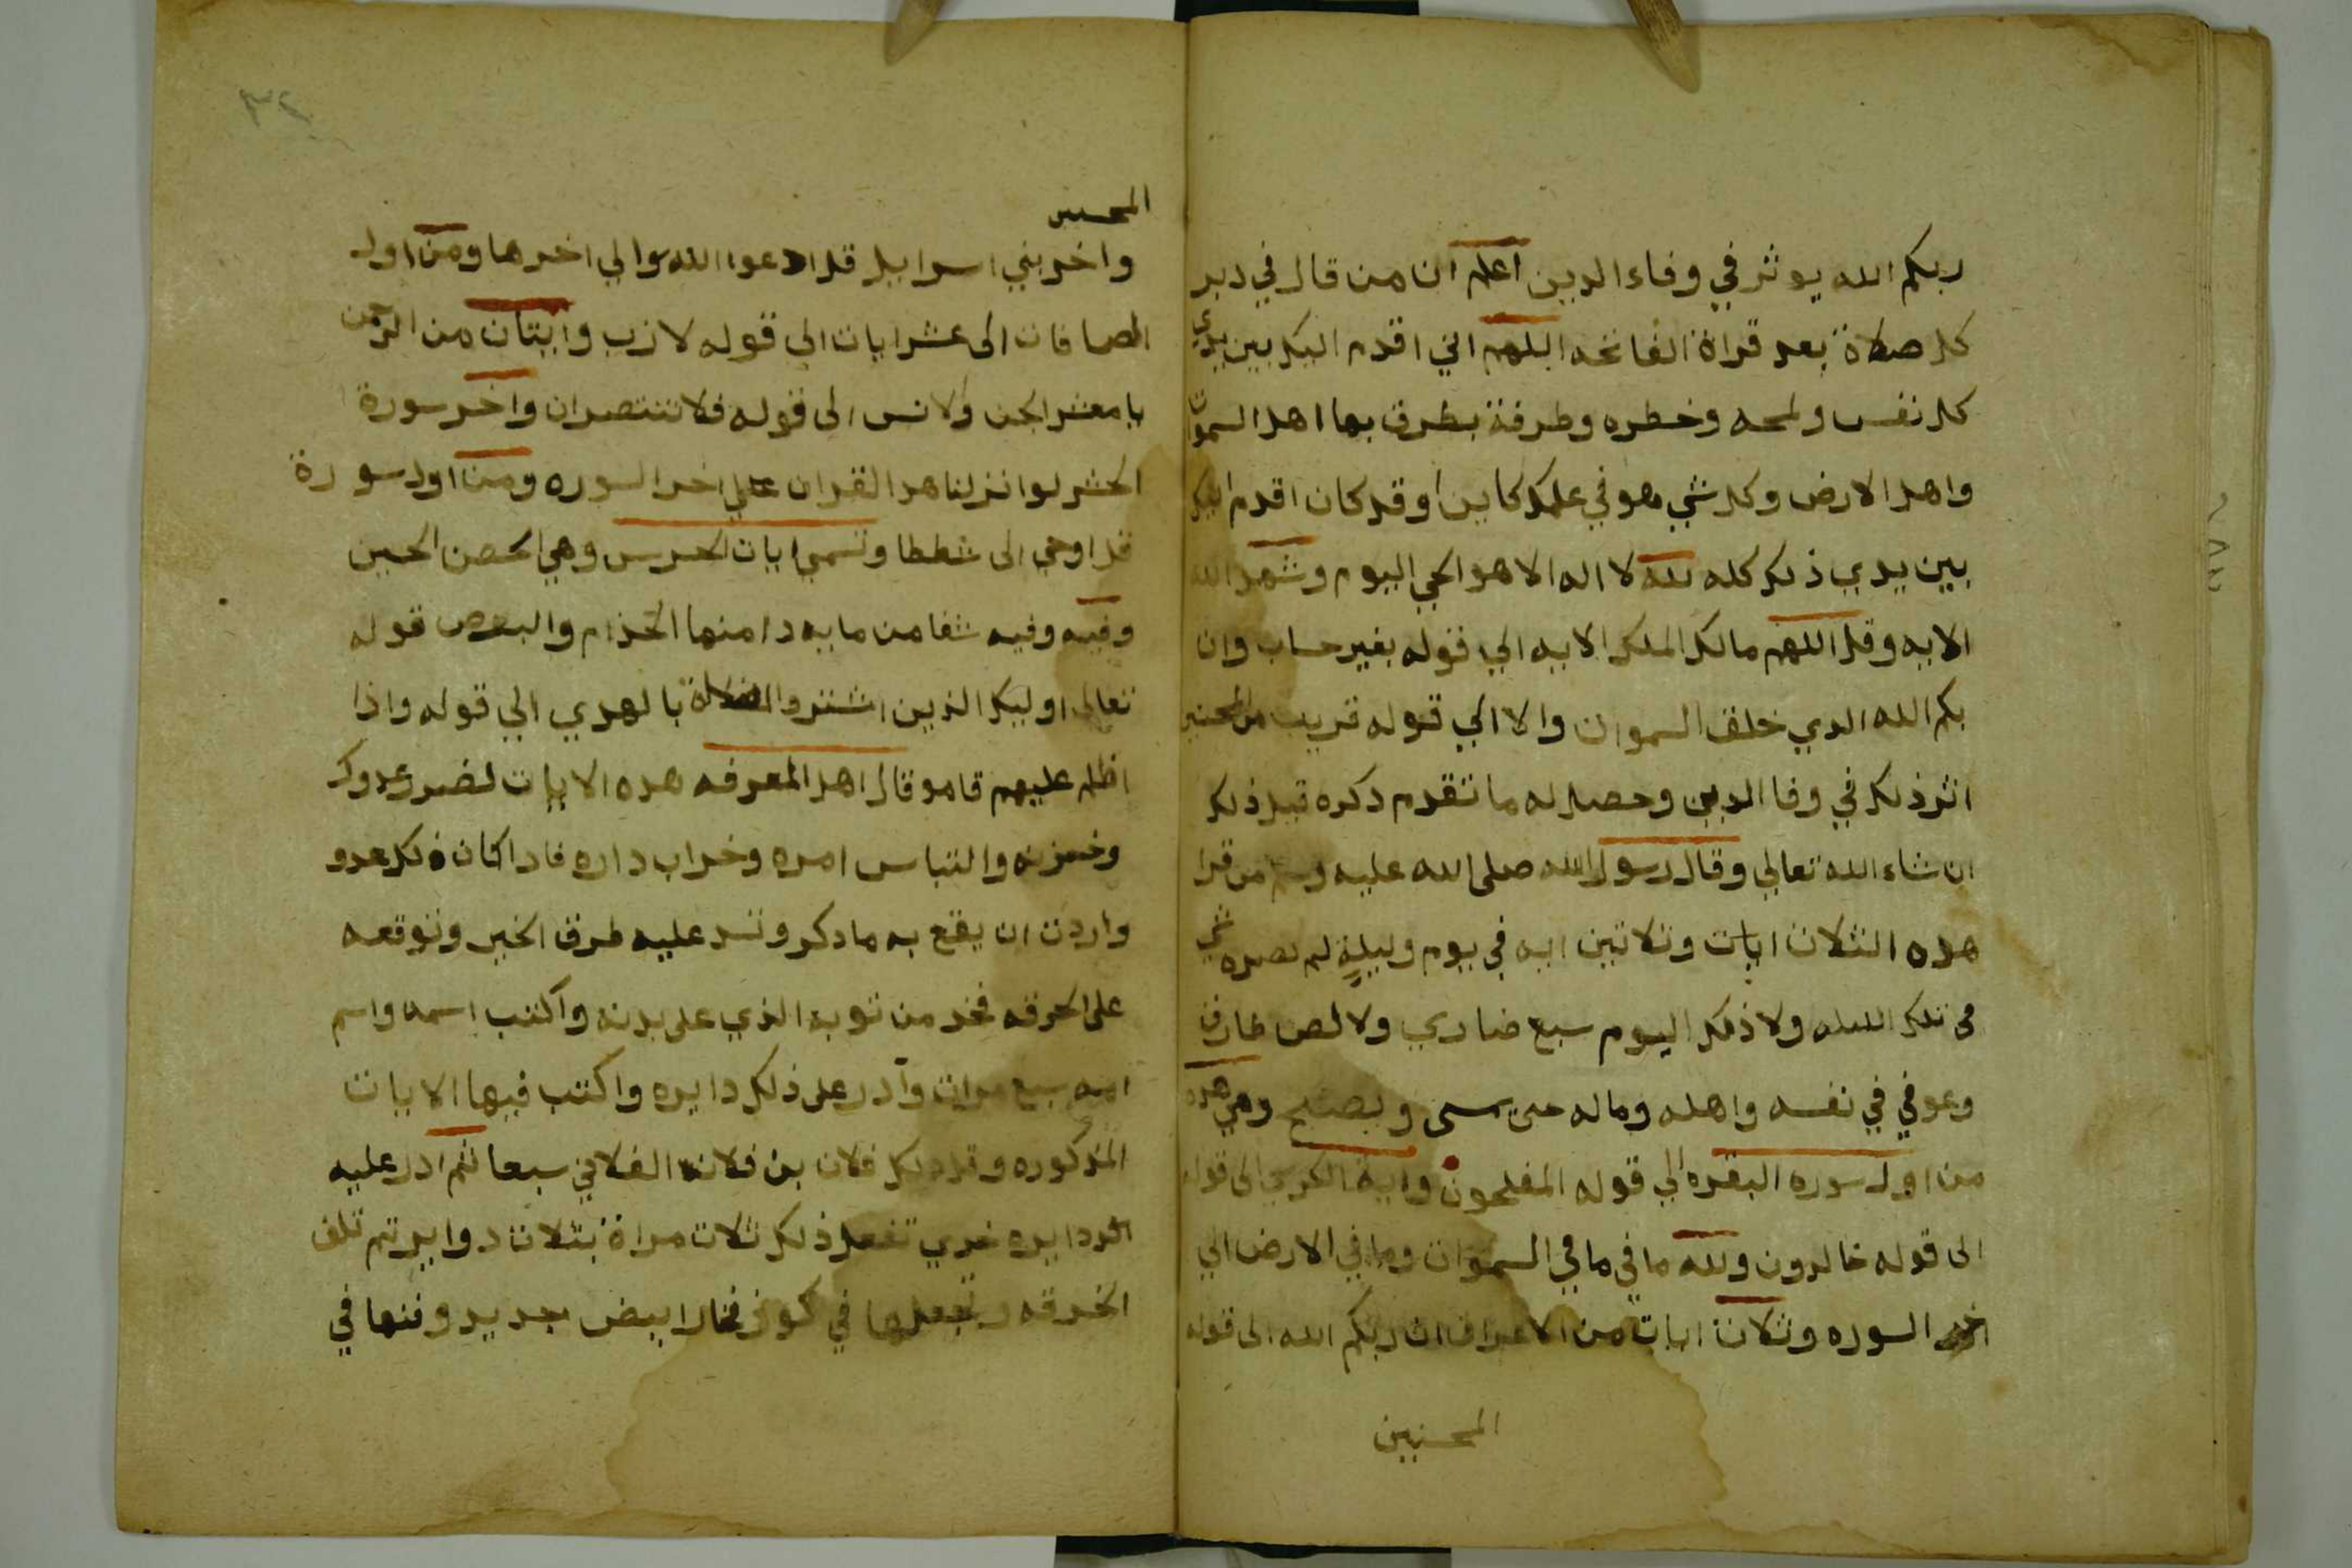 ربكم الله يوثر في وفاء الدين اعلم ان من قال في دبر
كل صلاة بعد قراة الفاتحه اللهم اني اقدم اليك بين يدي
كل نفس ولمحه وخطره وطرفة يطرف بها اهل السموات
واهل الارض وكل شي هو في علمك كاين او قد كان اقدم اليك
بين يدي ذلك كله لله لا اله الا هو الحي اليوم وشهد الله
الايه وقل اللهم مالك الملك الايه الي قوله بغير حساب وان
بكم الله الدي خلق السموات والا الي قوله قريب من المحسنين
اثر ذلك في وفا الدين وحصل له ما تقدم دكره قبل ذلك
ان شاء الله تعالي وقال رسول الله صلى الله عليه وسلم من قرا
هده الثلاث ايات وثلاثين ايه في يوم وليلةٍ لم يضره شي
في تلك الليله ولا ذلك اليوم سبع ضاري ولا لص طارق
وعوفي في نفسه واهله وماله حتى يمسى ويصبح وهي هده
من اول سوره البقره الي قوله المفلحون واية الكرسي الى قوله
الى قوله خالدون ولله ما في ما في السموات وما في الارض الي
اخر السوره وثلاث ايات من الاعراف ان ربكم الله الى قوله
المحسنين
٣٢
المحسنين
واخر بني اسرايل قل ادعوا الله والي اخرها ومن اول
الصافات الى عشر ايات الى قوله لازب وايتان من الرحمن
يا معشر الجن والانس الى قوله فلا تنتصران واخر سورة
الحشر لو انزلنا هدا القران علي اخر السوره ومن اول سورة
قل اوحي الى شططا وتسمي ايات الحرس وهي الحصن الحصين
وفيه وفيه شفا من مايه دا منها الجذام والبرص قوله
تعالى اوليك الذين اشتروا الضلالة بالهدي الي قوله واذا
اظلم عليهم قامو قال اهل المعرفه هده الايات لضرر عدوك
وخزيه والتباس امره وخراب داره فاذا كان ذلك عدو
واردت ان يقع به مادكر وتسد عليه طرق الخير وتوقعه
على الحرقه فخد من توبه الذي على بدنه واكتب اسمه واسم
امه سبع مرات وآدر على ذلك دايره واكتب فيها الايات
المذكوره وقل ذلك فلان بن فلانه الفلاني سبعا ثم ادر عليه
دايره اخري تفعل ذلك ثلاث مراة بثلاث دواير تم تلف
الخرقه وتجعلها في كوز فخار ابيض جديد وفنها في